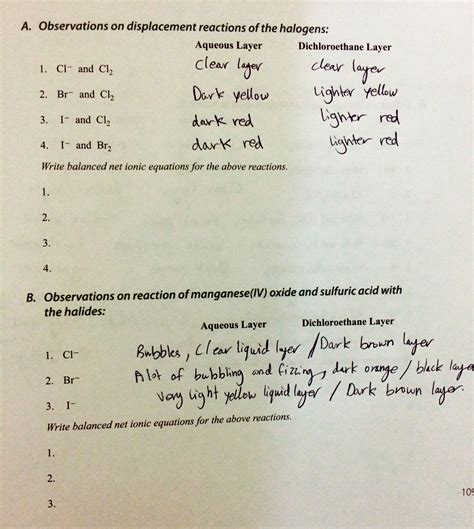 A. Observations on displacement reactions of the halogens:
Aqueous Layer Dichloroethane Layer
1. Cl⁻ and Cl₂ Clear layer clear layer
2. Br⁻ and Cl₂ Dark yellow Lighter yellow
3. I⁻ and Cl₂ dark red lighter red
4. I⁻ and Br₂ dark red lighter red
Write balanced net ionic equations for the above reactions.
1.
2.
3.
4.
B. Observations on reaction of manganese(IV) oxide and sulfuric acid with
the halides:
Aqueous Layer Dichloroethane Layer
1. Cl⁻ Bubbles, Clear liquid layer / Dark brown layer
2. Br⁻ A lot of bubbling and fizzing, dark orange / black layer
3. I⁻ Very light yellow liquid layer / Dark brown layer.
Write balanced net ionic equations for the above reactions.
1.
2.
3.